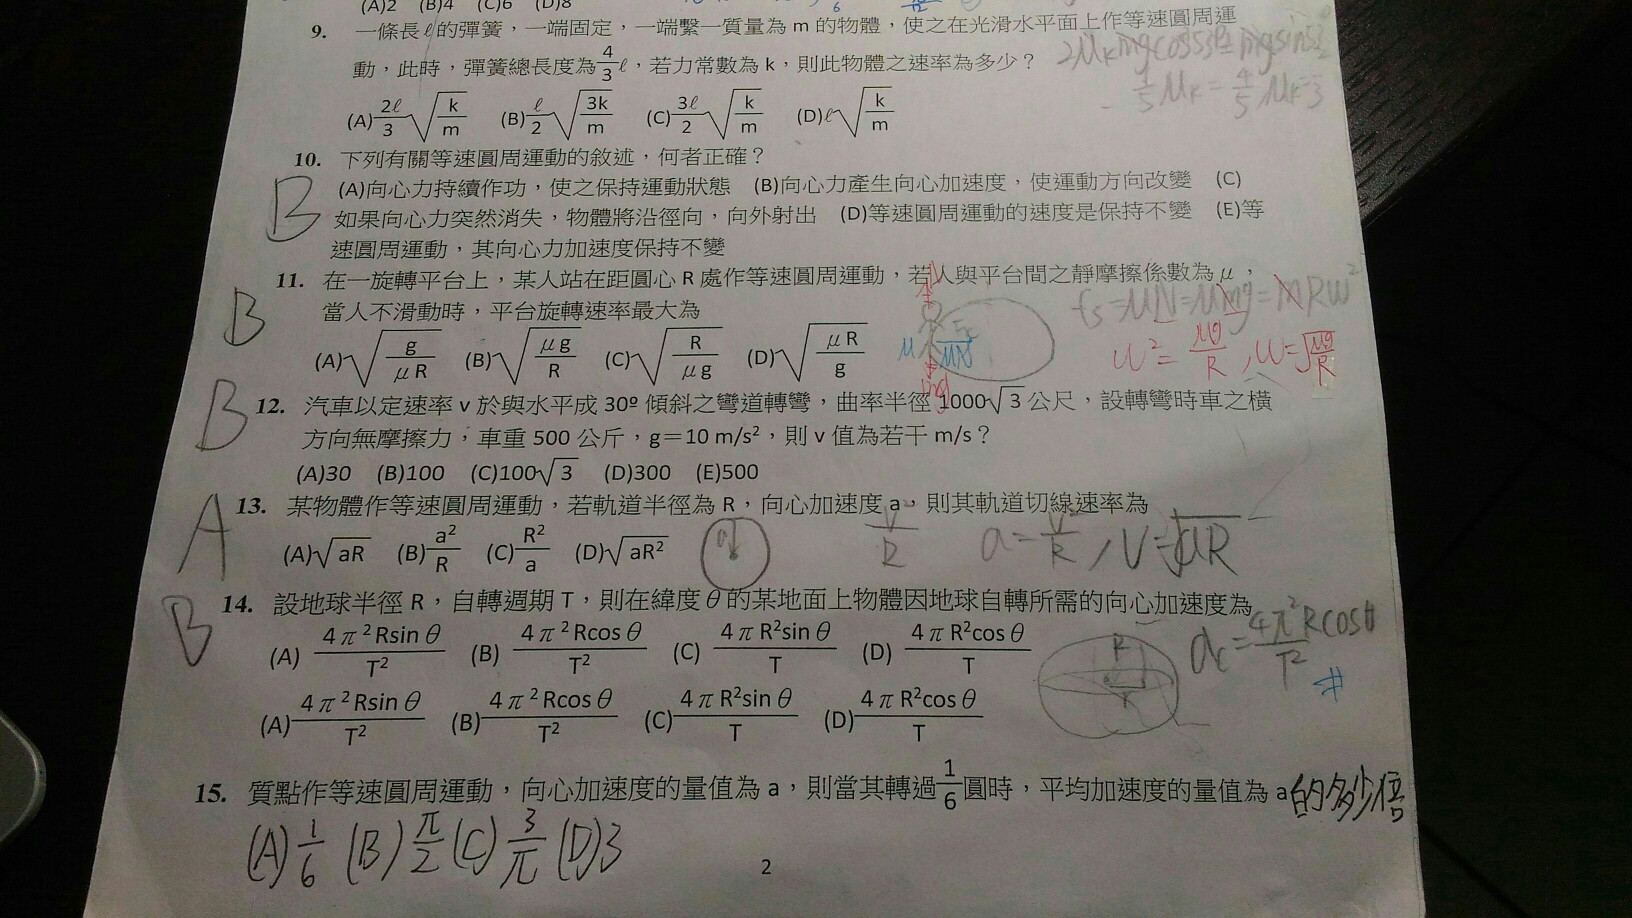 (A)2 (B)4 (C)6 (D)8
9. 一條長ℓ的彈簧，一端固定，一端繫一質量為 m 的物體，使之在光滑水平面上作等速圓周運
動，此時，彈簧總長度為4/3ℓ，若力常數為 k，則此物體之速率為多少？
(A)2ℓ/3√(k/m) (B)ℓ/2√(3k/m) (C)3ℓ/2√(k/m) (D)ℓ√(k/m)
10. 下列有關等速圓周運動的敘述，何者正確？
B
(A)向心力持續作功，使之保持運動狀態 (B)向心力產生向心加速度，使運動方向改變 (C)
如果向心力突然消失，物體將沿徑向，向外射出 (D)等速圓周運動的速度是保持不變 (E)等
速圓周運動，其向心力加速度保持不變
11. 在一旋轉平台上，某人站在距圓心 R 處作等速圓周運動，若人與平台間之靜摩擦係數為μ，
B
當人不滑動時，平台旋轉速率最大為
fs=μN=μmg=mRω²
(A)√(g/μR) (B)√(μg/R) (C)√(R/μg) (D)√(μR/g)
ω²=μg/R，ω=√(μg/R)
B
12. 汽車以定速率 v 於與水平成 30º 傾斜之彎道轉彎，曲率半徑 1000√3 公尺，設轉彎時車之橫
方向無摩擦力，車重 500 公斤，g＝10 m/s²，則 v 值為若干 m/s？
(A)30 (B)100 (C)100√3 (D)300 (E)500
A
13. 某物體作等速圓周運動，若軌道半徑為 R，向心加速度 a，則其軌道切線速率為
(A)√aR (B)a²/R (C)R²/a (D)√aR²
v²/R a=v²/R，V=√aR
B
14. 設地球半徑 R，自轉週期 T，則在緯度θ的某地面上物體因地球自轉所需的向心加速度為
(A) 4π²Rsinθ/T² (B) 4π²Rcosθ/T² (C) 4πR²sinθ/T (D) 4πR²cosθ/T
ac=4π²Rcosθ/T² #
(A)4π²Rsinθ/T² (B)4π²Rcosθ/T² (C)4πR²sinθ/T (D)4πR²cosθ/T
15. 質點作等速圓周運動，向心加速度的量值為 a，則當其轉過1/6圓時，平均加速度的量值為 a的多少倍
(A)1/6 (B)π/2 (C)3/π (D)3
2